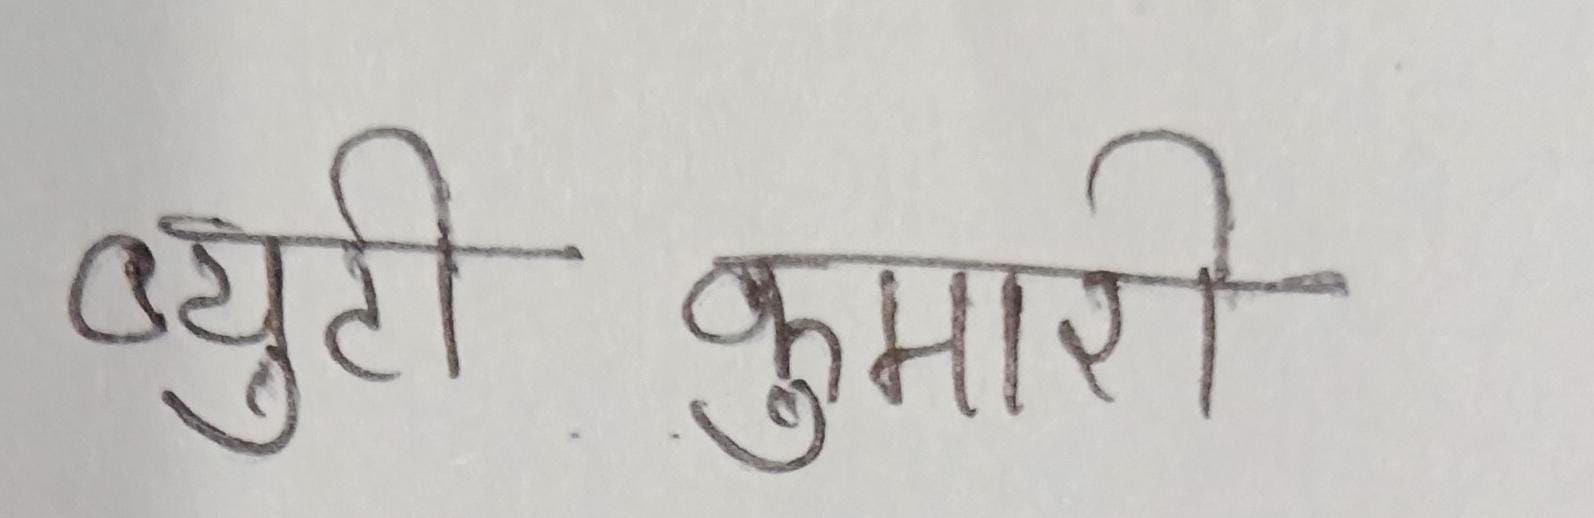 ब्युटी कुमारी